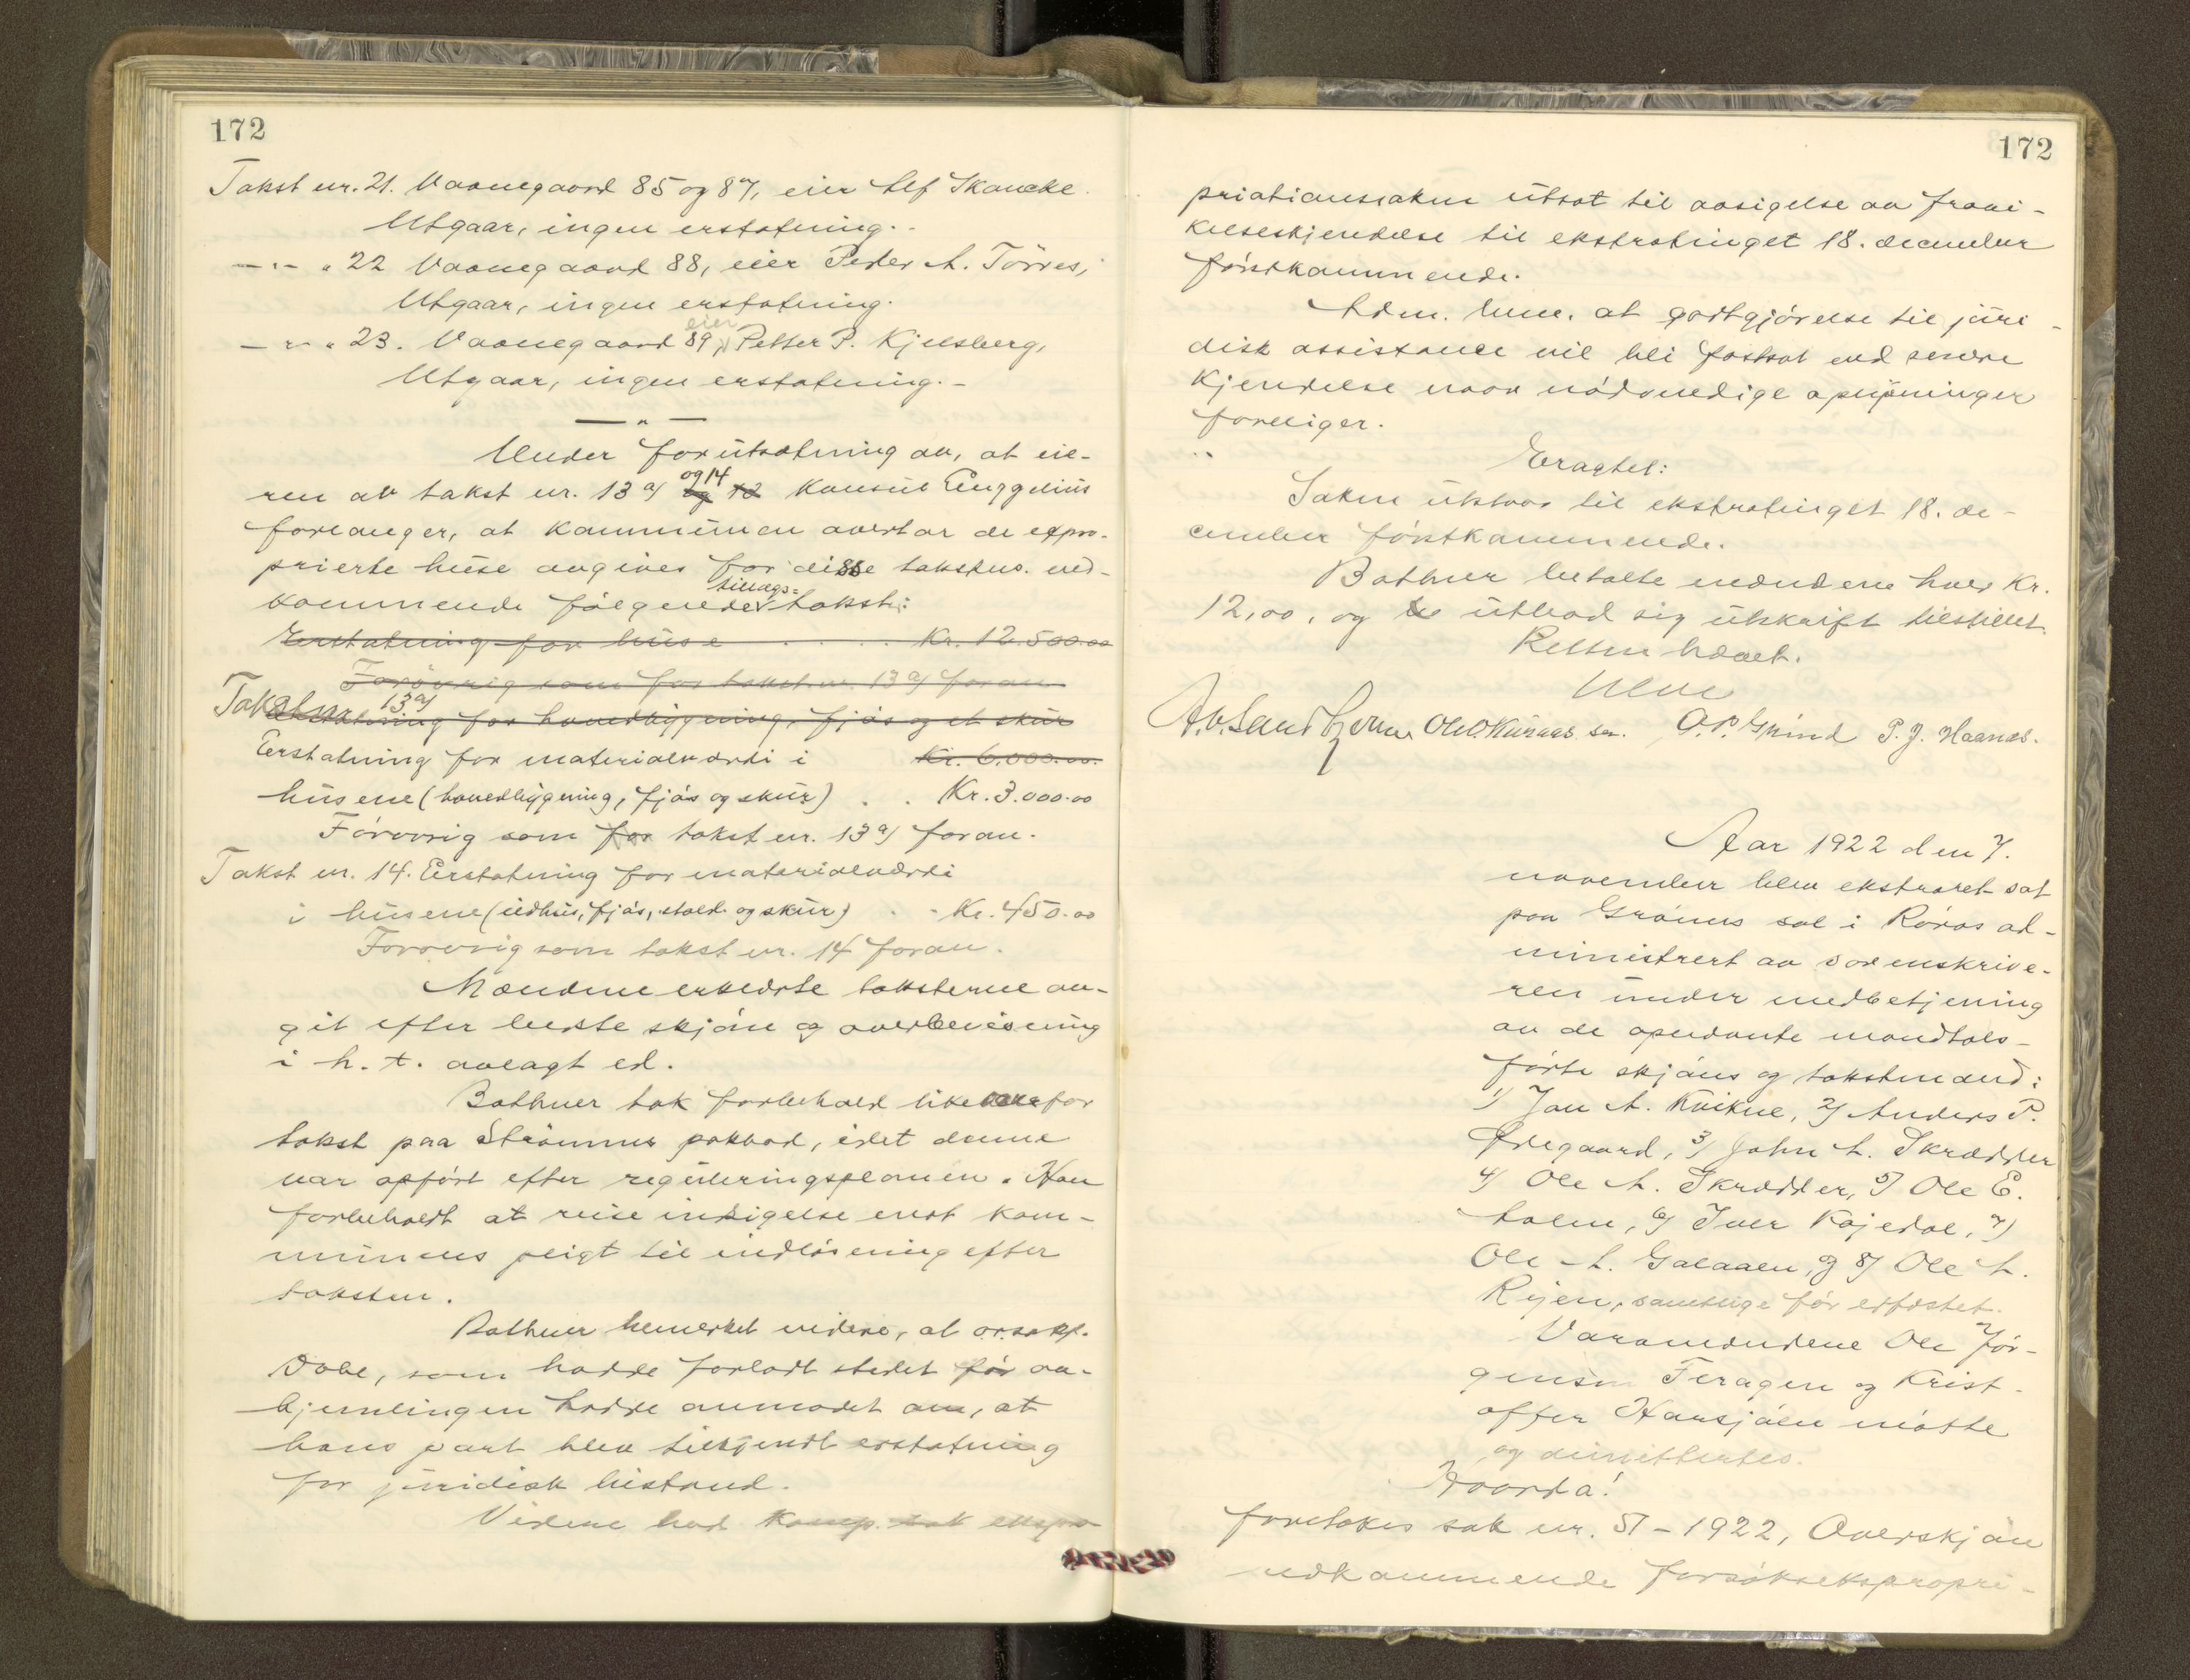 172
Takst nr. 21. Vaanegaard 85 og 87, eier Alf Skancke.
Utgaar, ingen erstatning.-
—"— " 22 Vaanegaard 88, eier Peder A. Törres,
Utgaar, ingen erstatning.
eier
—"— " 23. Vaanegaard 89, Petter P. Kjelsberg,
Utgaar, ingen erstatning.-
— " —
Under forutsætning av, at eie-
og 14
ren av takst nr. 13 a/ og 12 konsul Engzelius
forlanger, at kommunen avertar de expro-
prierte huse avgives for disse takstnr. ved-
tillægs-
kommende følgende takst:
Erstatning for huse . . . . Kr. 12.500.00
Forövrig som for takst nr. 13 a/ foran
Takst nr. 13 a/
Erstatning for hovedbygning, fjøs og et skur
Erstatning for materialværdi i Kr. 6.000.00.
husene (hovedbygning, fjøs og skur) . . Kr. 3.000.00
Forøvrig som for takst nr. 13 a/ foran.
Takst nr. 14. Erstatning for materialværdi
i husene (vedhus, fjøs, stald og skur) . - Kr. 450.00
Forøvrig som takst nr. 14 foran.
Mændene erklærte taksterne av-
git efter bedste skjøn og overbevisning
i h. t. avlagt ed.
Bathner tok forbehold likeoverfor
takst paa Strømmes pakbod, idet denne
var opført efter reguleringsplanen. Han
forbeholdt at reise indsigelse mot kom-
munens pligt til indløsning efter
taksten.
Bathner bemerket videre, at o.r.sakf.
Dahl, som hadde forlatt stedet før av-
hjemlingen hadde anmodet om, at
hans part blev tilkjendt erstatning
for juridisk bistand.
Videre bad komp. sak ekspro
172
priationssaken utsat til avsigelse av fravi-
kelseskjendelse til ekstratinget 18. december
førstkommende.
Adm. bem. at godtgjørelse til juri-
disk assistance vil bli fastsat ved senere
kjendelse naar nødvendige oplysninger
foreligger.
Eragtet:
Saken utstaar til ekstratinget 18. de-
cember førstkommende.
Bathner betalte mændene hver kr.
12,00, og utbad sig utskrift tilstillet.
Retten hævet.
A.O. Sandtjernn Ole O. Kuraas sen. O. P. Grind P. J. Haanæs.
Aar 1922 den 7.
november blev ekstraret sat
paa Grønns sal i Røros ad-
ministrert av sorenskrive-
ren under medbetjening
av de opnævnte mandtals-
førte skjøns og takstmænd:
1) Jan A. Kvikne, 2) Anders P.
Ødegaard, 3) John A. Skrædder
4) Ole A. Skrædder, 5) Ole E.
Holm, 6) Iver Kojedal, 7)
Ole A. Galaaen, og 8) Ole A.
Ryen, samtlige før edfæstet.
Varamændene Ole Jör-
gensen Feragen og Krist-
offer Harsjøen møtte
og dimittertes.
Hvorda!
foretokes sak nr. 51 - 1922, Overskjøn
vedkommende forsøksekspropri-